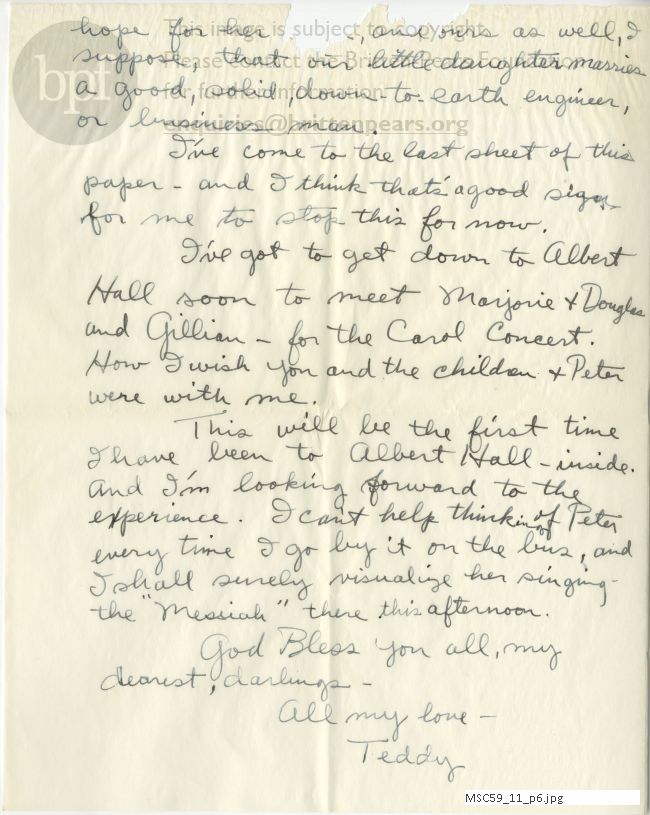 This image is subject to copyright.
Please contact the Britten-Pears Foundation
for further information.
enquiries@brittenpears.org
bpf
hope for her , and ours as well, I
suppose, that our little daughter marries
a good, solid, down-to-earth engineer,
or business man.
I've come to the last sheet of this
paper - and I think that's a good sign
for me to stop this for now.
I've got to get down to Albert
Hall soon to meet Marjorie & Douglas
and Gillian - for the Carol Concert.
How I wish you and the children & Peter
were with me.
This will be the first time
I have been to Albert Hall - inside.
And I'm looking forward to the
experience. I can't help thinking of Peter
every time I go by it on the bus, and
I shall surely visualize her singing
the "Messiah" there this afternoon.
God Bless you all, my
dearest, darlings -
All my love -
Teddy
MSC59_11_p6.jpg